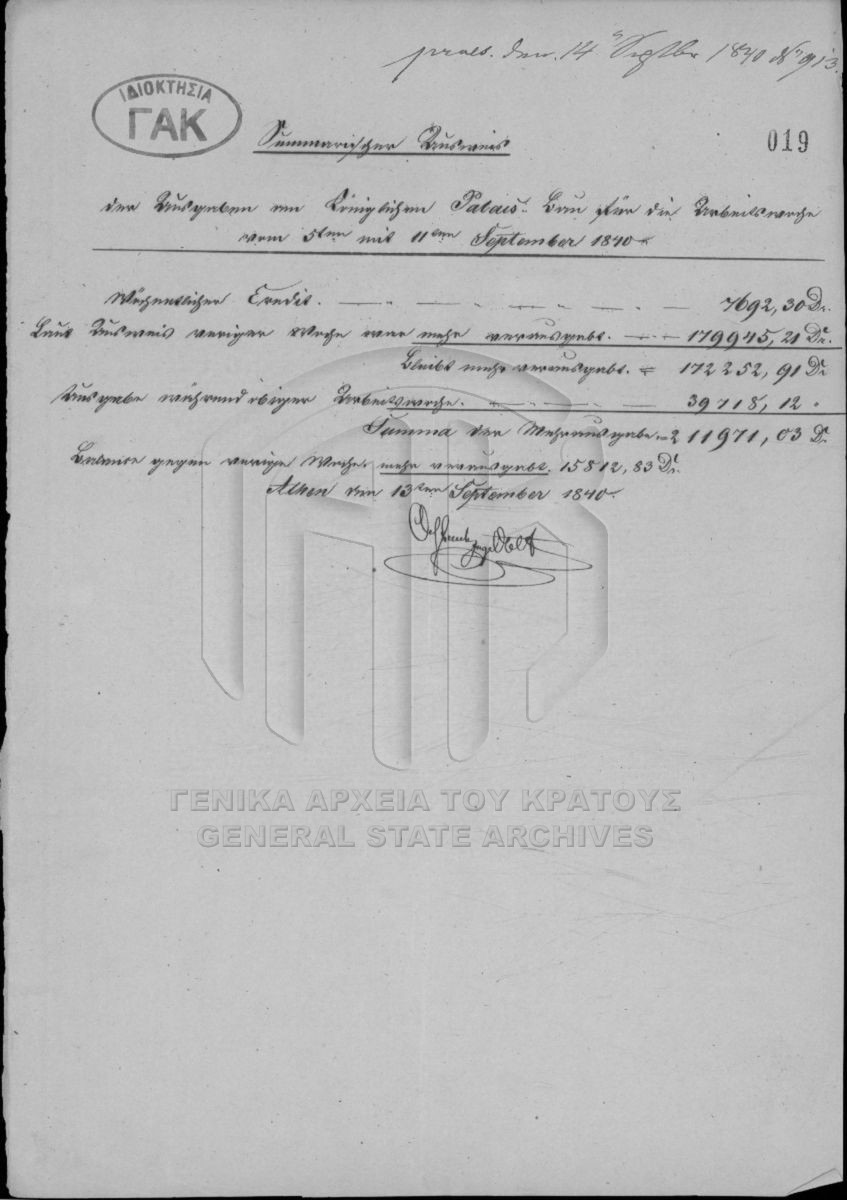 praes. den 14 Septbr 1840 No 913.
ΙΔΙΟΚΤΗΣΙΑ
ΓΑΚ
019
Summarischer Ausweis
der Ausgaben am Königlichen Palais-Bau für die Arbeitswoche
vom 5ten mit 11ten September 1840
Wöchentlicher Credit. 7692,30 Dr.
Laut Ausweis voriger Woche war mehr verausgabt. 179945,21 Dr.
Bleibt mehr verausgabt. = 172252,91 Dr
Ausgabe während obiger Arbeitswoche. 39718,12 "
Summa der Mehrausgabe = 211971,03 Dr
gegen vorige Woche mehr verausgabt. 15812,83 Dr.
Athen den 13ten September 1840
ΓΕΝΙΚΑ ΑΡΧΕΙΑ ΤΟΥ ΚΡΑΤΟΥΣ
GENERAL STATE ARCHIVES